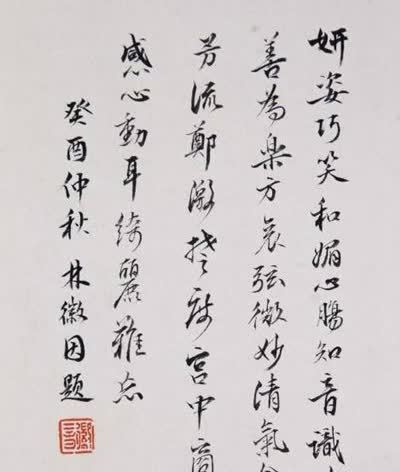 妍姿巧笑和媚心腸知音識
善為樂方哀弦微妙清氣
芳流鄭激楚度宮中商
感心動耳綺麗難忘
癸酉仲秋 林徽因題